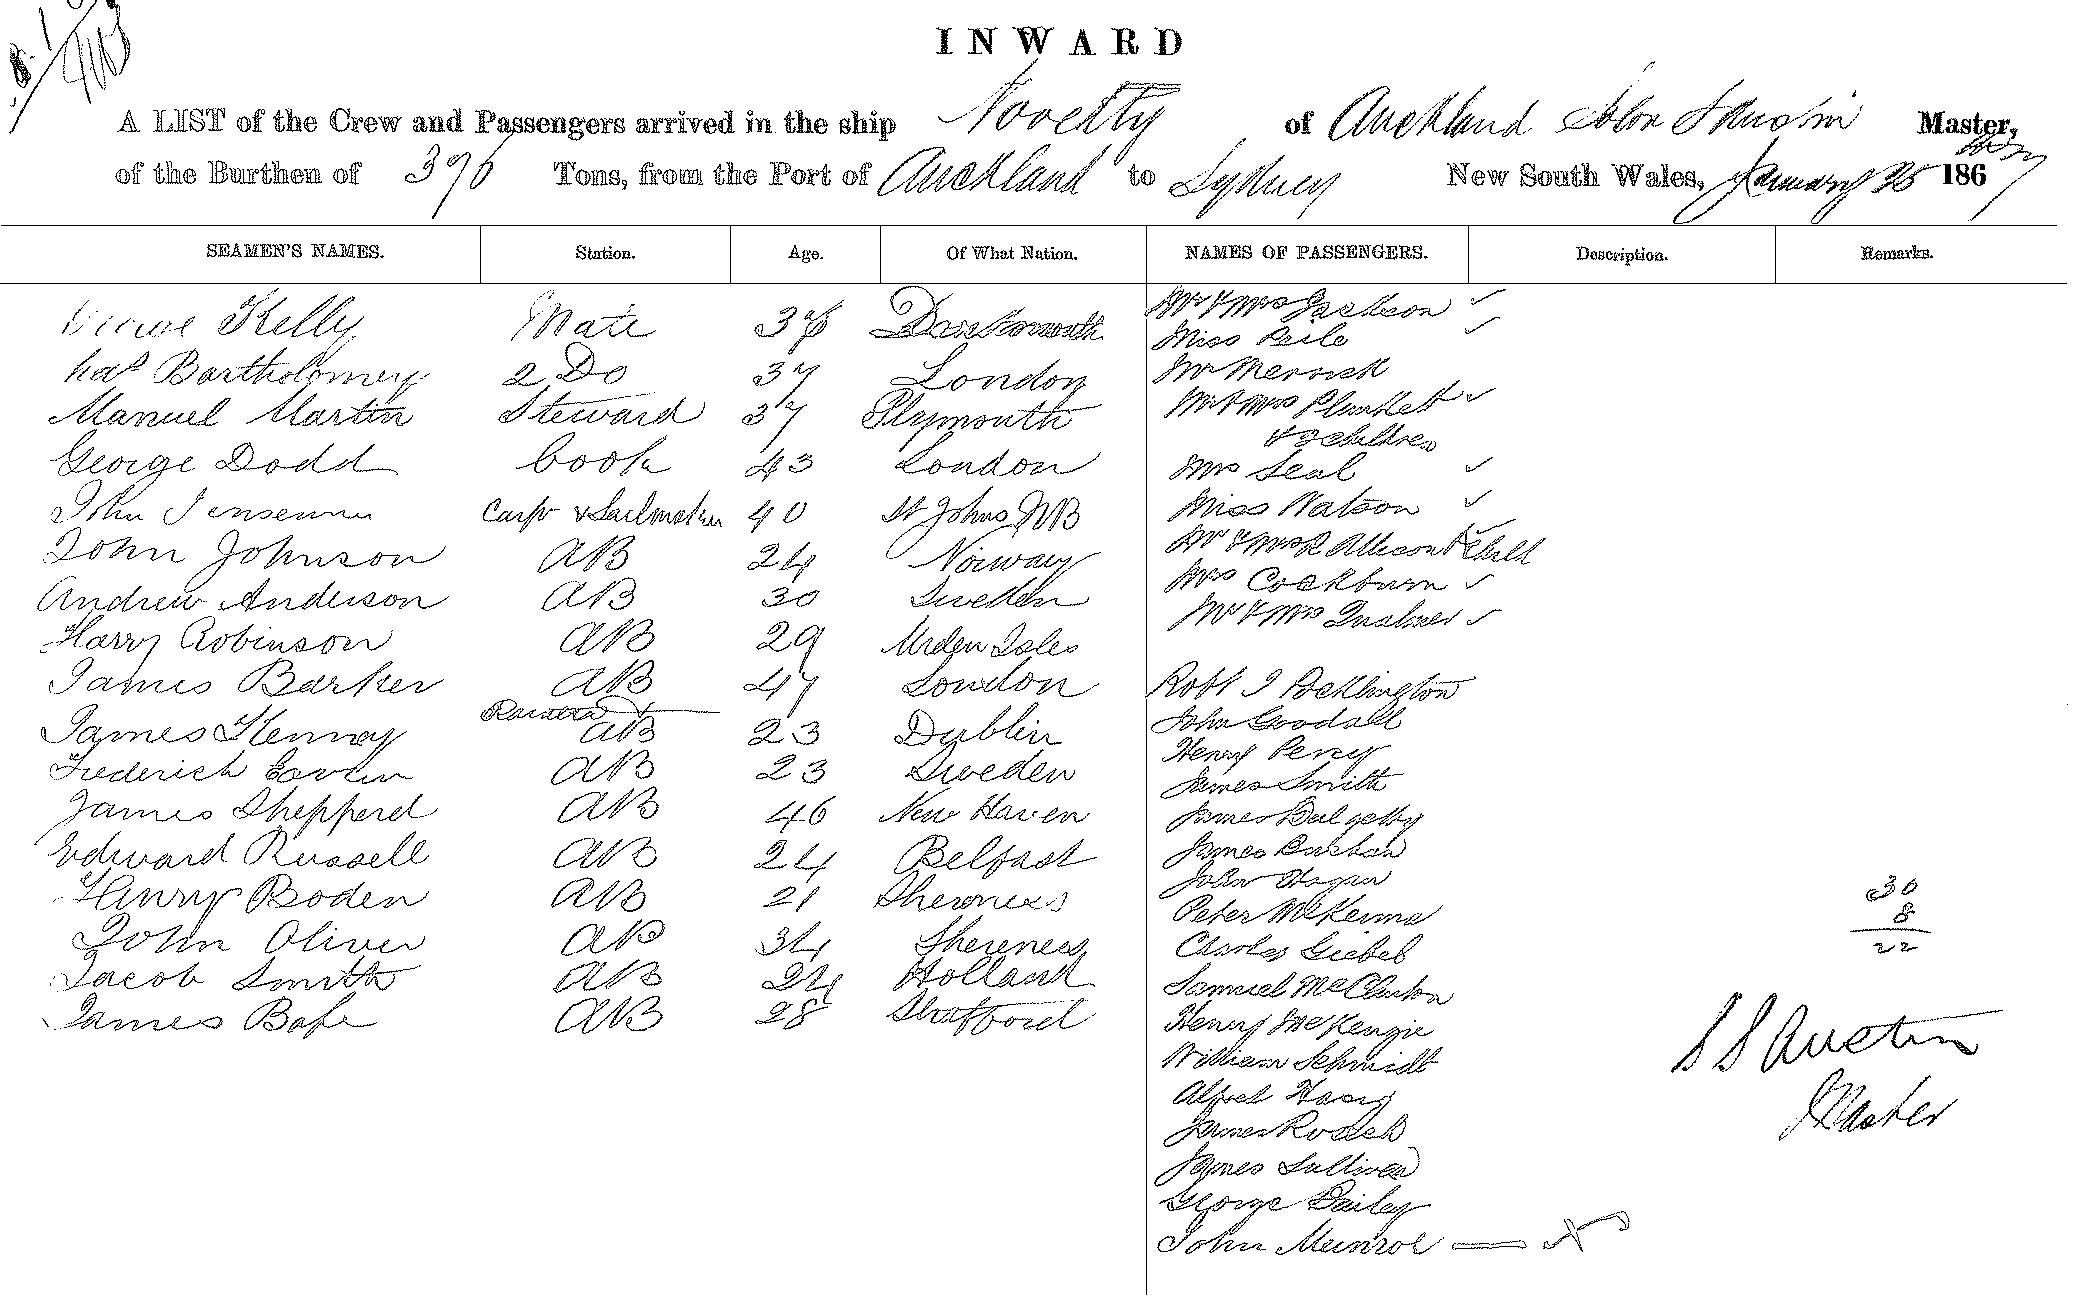 INWARD
A LIST of the Crew and Passengers arrived in the ship Novelty of Auckland John S Austin Master,
of the Burthen of 396 Tons, from the Port of Auckland to Sydney New South Wales, January 25 1867
SEAMEN'S NAMES. Station. Age. Of What Nation. NAMES OF PASSENGERS. Description. Remarks.
Kelly Mate 38 Dartmouth
Bartholomew 2 Do 37 London
Manuel Martin Steward 37 Plymouth
George Dodd Cook 43 London
John Carpr & Sailmaker 40 St Johns NB
John Johnson AB 24 Norway
Andrew Anderson AB 30 Sweden
Harry Robinson AB 29 Isles
James Barker AB 47 London
James Kenney AB 23 Dublin
Frederick AB 23 Sweden
James Shepperd AB 46 New Haven
Edward Russell AB 24 Belfast
Henry Boden AB 21 Sherness
John Oliver AB 34 Shereness
Jacob Smith AB 24 Holland
James AB 28
Mr & Mrs Jackson
Miss Peile
Mr Merrick
Mr & Mrs Plunkett
& children
Mrs Seal
Miss Watson
Mr & Mrs R Allison & Child
Mrs Cockburn
Mr & Mrs
Robt J Pocklington
John Goodall
Henry Percy
James Smith
James Dalgetty
James
John Hogan
Peter McKenna
Charles Giebel
Samuel McClinton
Henry McKenzie
William Schmidt
Alfred
James Roach
James Sullivan
George Bailey
John Munroe
30
8
22
S S Austin
Master